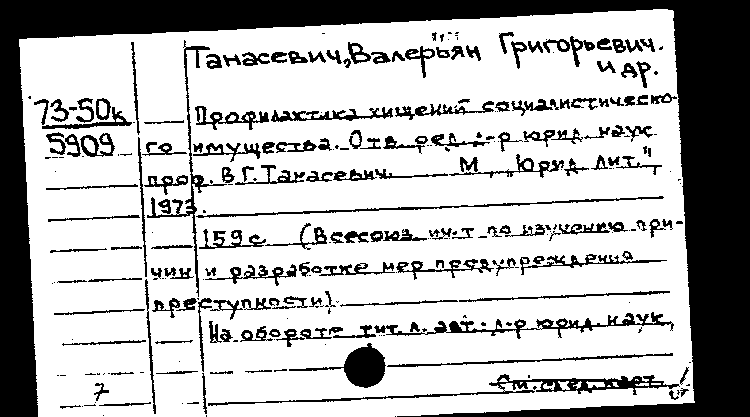 Танасевич, Валерьян Григорьевич.
и др.
73-50к
5909
Профилактика хищений социалистическо-
го имущества. Отв. ред. д-р юрид. наук
проф. В.Г. Танасевич. М., "Юрид. лит.",
1973.
159 с. (Всесоюз. ин-т по изучению при-
чин и разработке мер предупреждения
преступности).
На обороте тит. л. авт.: д-р юрид. наук,
7
См. след. карт.